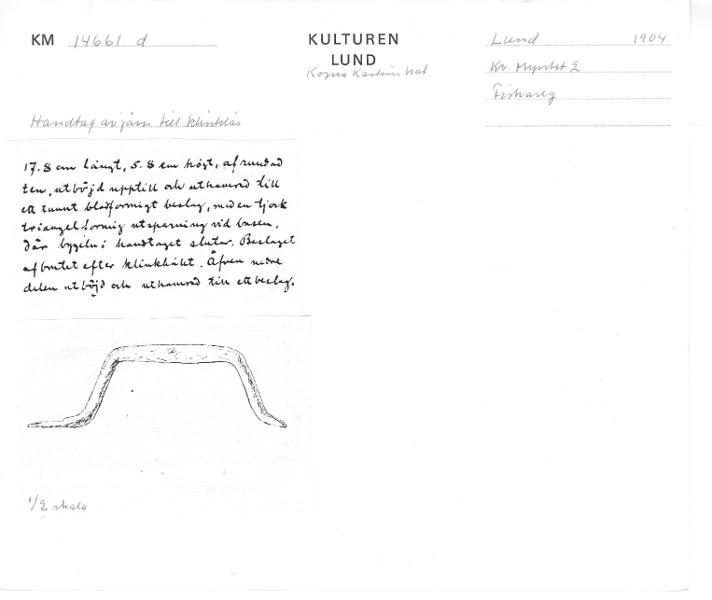 KM 14661 d
KULTUREN
LUND
Kopia Karlin kat.
Lund 1904
Kv Myntet 2
Fiskareg
Handtag av järn till klinklås
17.8 cm långt, 5.8 cm högt, af rundad
ten, utböjd upptill och uthamrad till
ett tunnt bladformigt beslag, med en tjock
triangelformig utsparning vid basen,
där bygeln i handtaget slutar. Beslaget
afbrutet efter klinkhålet. Äfven nedre
delen utböjd och uthamrad till ett beslag.
1/2 skala